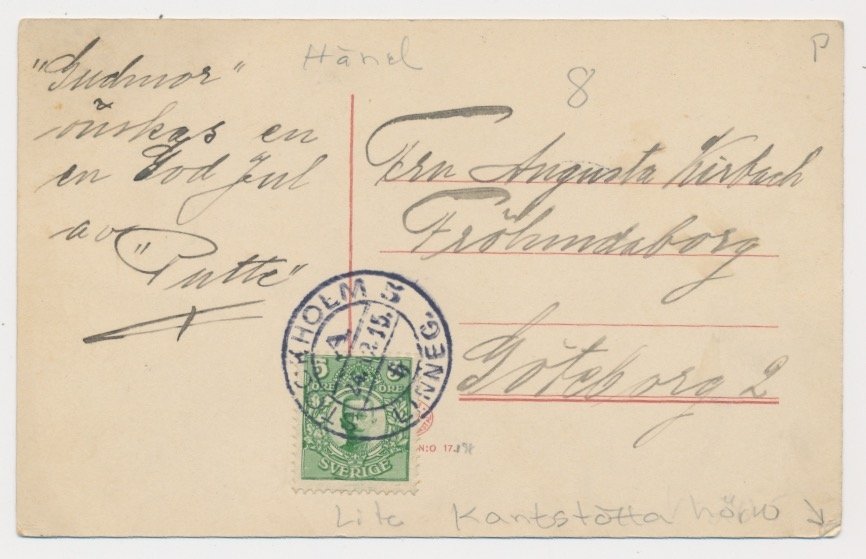 Hänel
P
8
"Gudmor"
önskas en
en God Jul
av
"Putte"
Fru Augusta Kirbach
Fröhundaborg
Göteborg 2
HOLM 5
LINNEG.
5 ÖRE 5 ÖRE
SVERIGE
N:O 17
Lite Kantstötta hörn